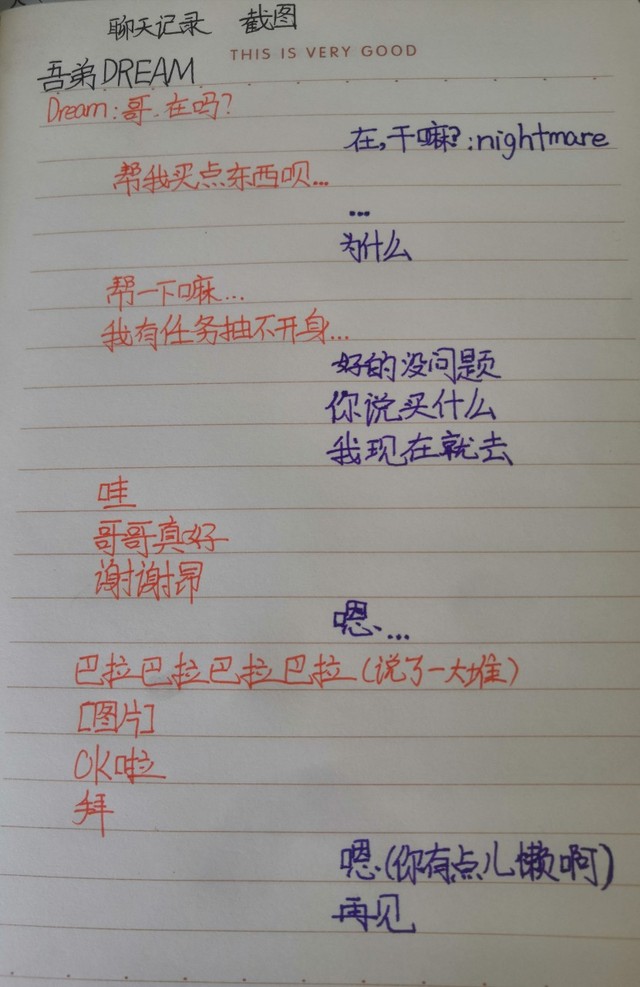 聊天记录 截图
THIS IS VERY GOOD
吾弟DREAM
Dream:哥.在吗?
在,干嘛?:nightmare
帮我买点东西呗...
...
为什么
帮一下嘛...
我有任务抽不开身...
好的没问题
你说买什么
我现在就去
哇
哥哥真好
谢谢昂
嗯...
巴拉巴拉巴拉巴拉(说了一大堆)
[图片]
OK啦
拜
嗯.(你有点儿懒啊)
再见